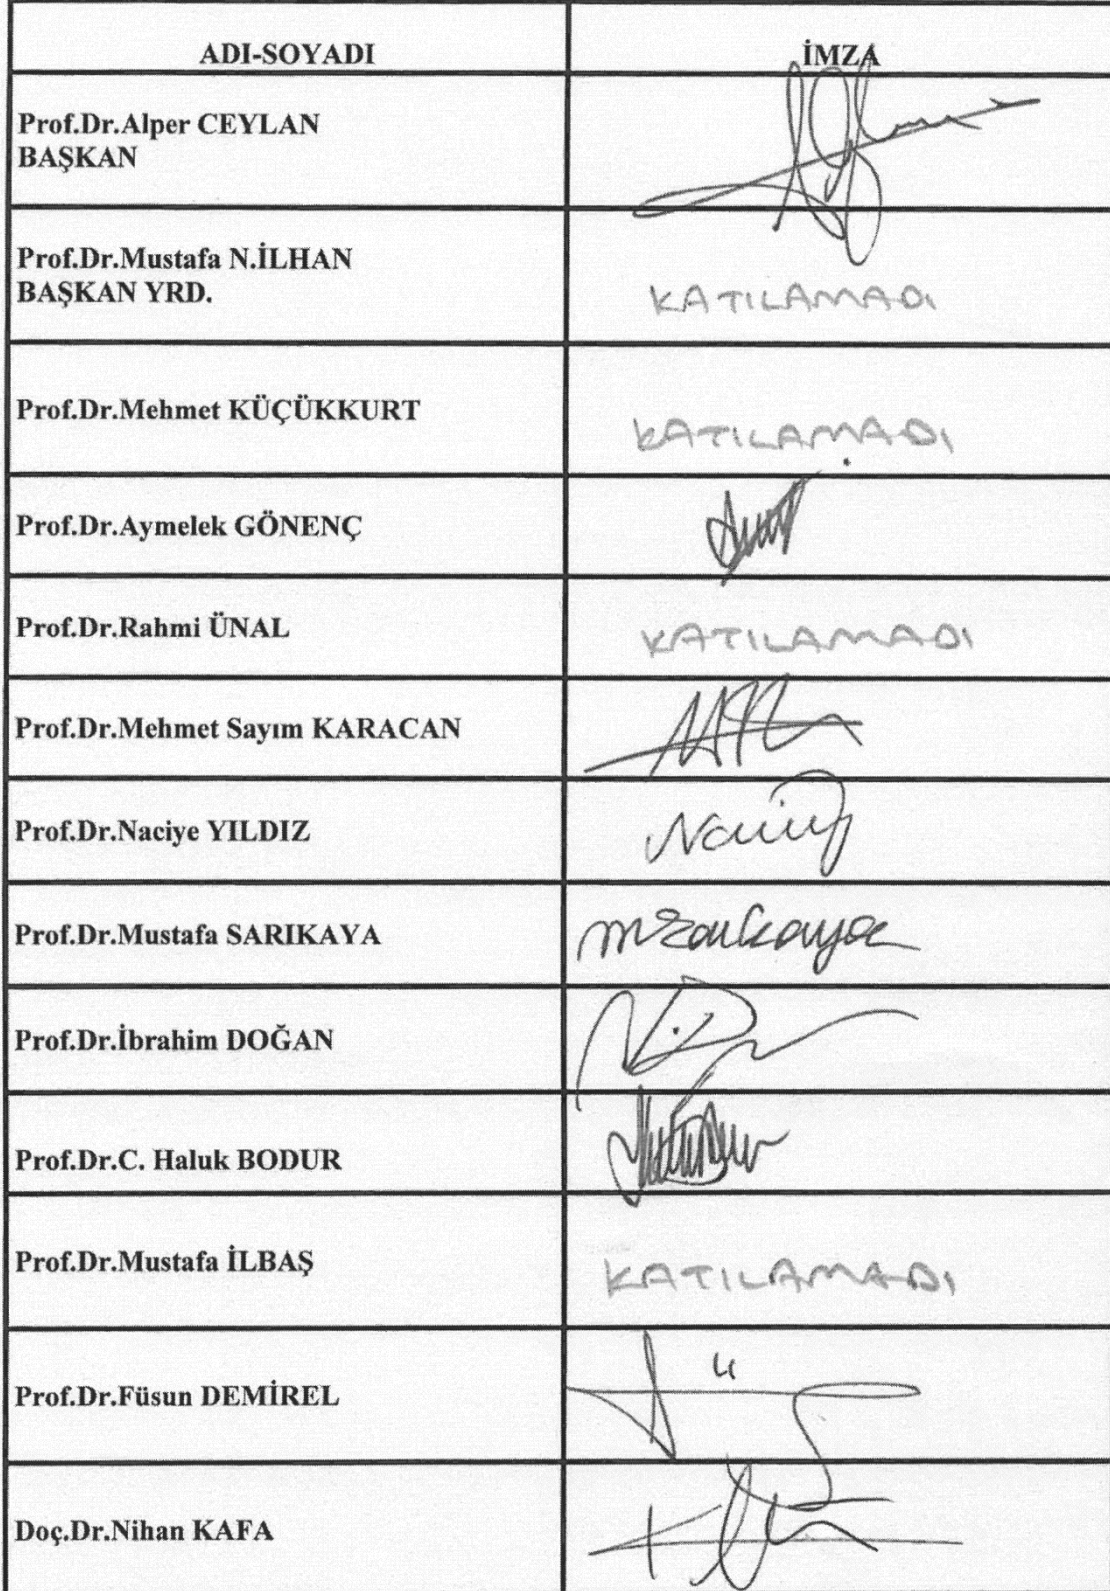 ADI-SOYADI İMZA
Prof.Dr.Alper CEYLAN
BAŞKAN
Prof.Dr.Mustafa N.İLHAN
BAŞKAN YRD.
KATILAMADI
Prof.Dr.Mehmet KÜÇÜKKURT
KATILAMADI
Prof.Dr.Aymelek GÖNENÇ
Prof.Dr.Rahmi ÜNAL
KATILAMADI
Prof.Dr.Mehmet Sayım KARACAN
Prof.Dr.Naciye YILDIZ
Prof.Dr.Mustafa SARIKAYA
Prof.Dr.İbrahim DOĞAN
Prof.Dr.C. Haluk BODUR
Prof.Dr.Mustafa İLBAŞ
KATILAMADI
Prof.Dr.Füsun DEMİREL
Doç.Dr.Nihan KAFA